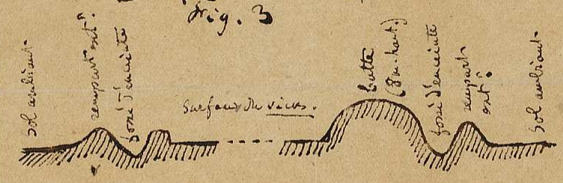 Fig. 3
Sol ambiant.
rempart extr
fossé d'enceinte
Surface du vicus.
butte
(8m haut.)
fossé d'enceinte
rempart
extr
Sol ambiant.